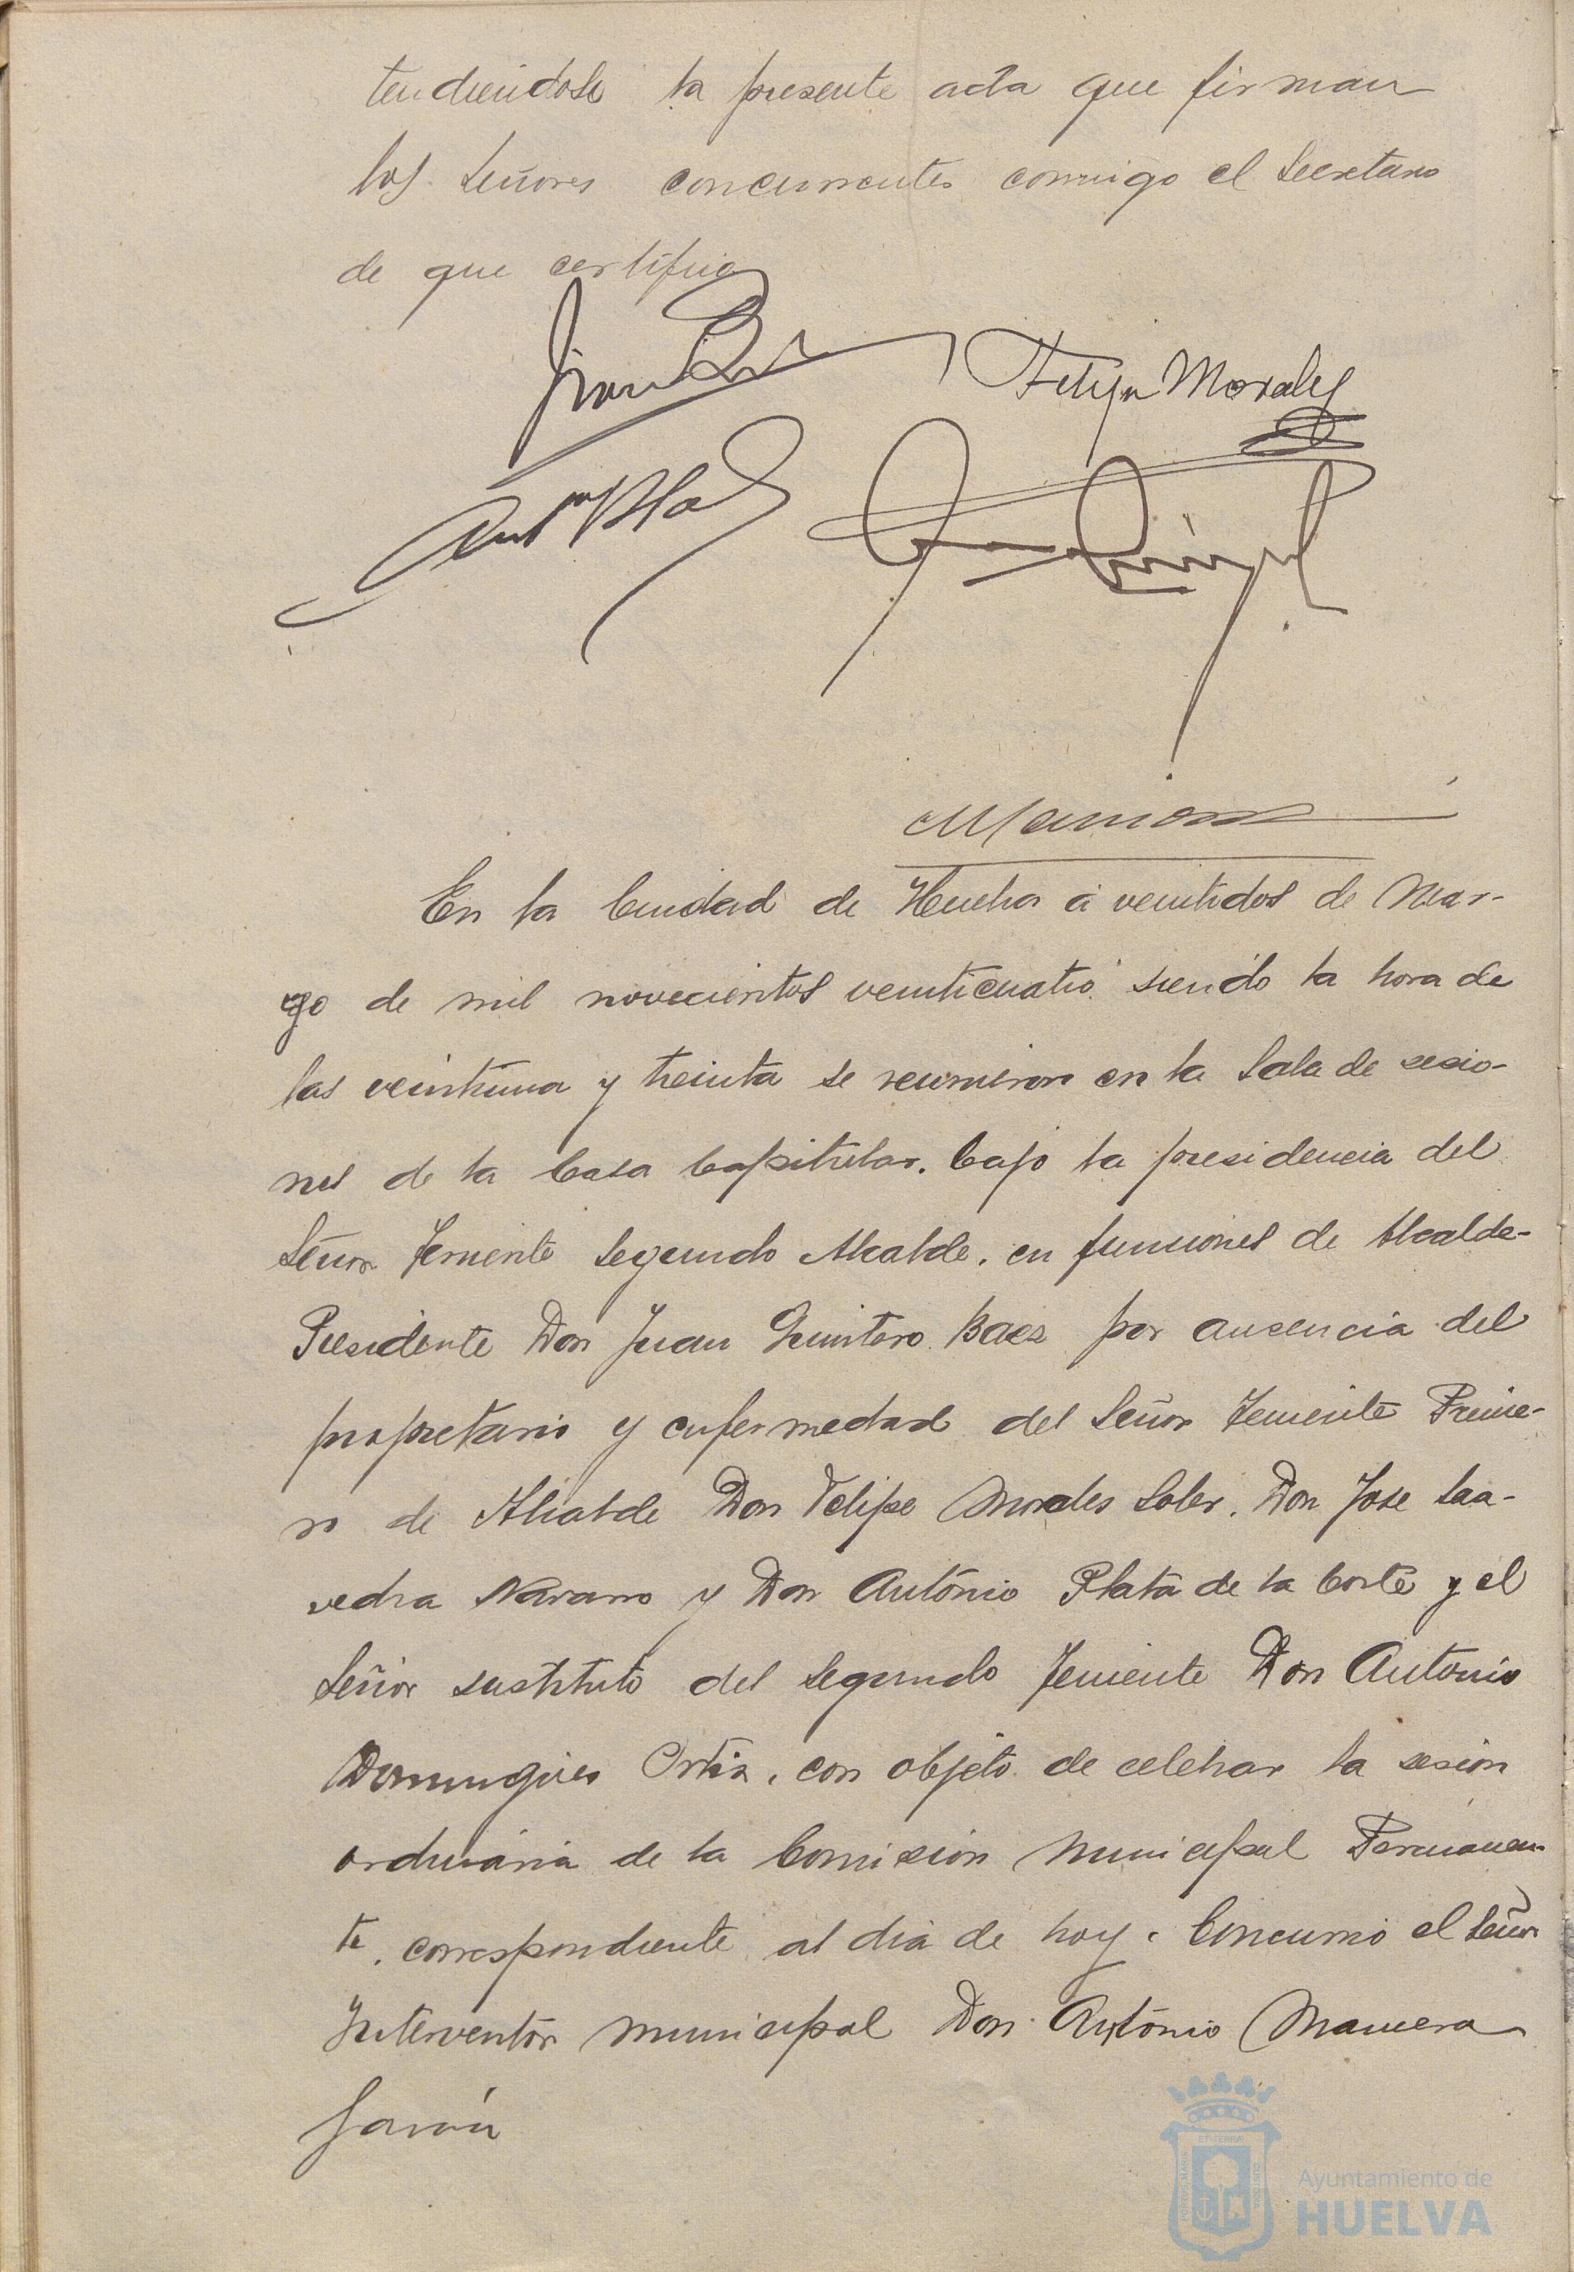 tendiendose la presente acta que firman
los Señores concurrentes conmigo el Secretario
de que certifico
Felipe Morales
Ant.º Plata
En la Ciudad de Huelva a veintidos de Mar-
zo de mil novecientos veinticuatro siendo la hora de
las veintiuna y treinta se reunieron en la Sala de sesio-
nes de la Casa Capitular, bajo la presidencia del
Señor Teniente Segundo Alcalde, en funciones de Alcalde-
Presidente Don Juan Quintero Baez por ausencia del
propietario y enfermedad del Señor Teniente Prime-
ro de Alcalde Don Felipe Morales Soler, Don Jose Saa-
vedra Navarro y Don António Plata de la Corte y el
Señor sustituto del Segundo Teniente Don Antonio
Dominguez Ortiz, con objeto de celebrar la sesion
ordinaria de la Comision Municipal Permanen-
te, correspondiente al dia de hoy. Concurrió el Señor
Interventor municipal Don António Mancera
Ayuntamiento de
HUELVA